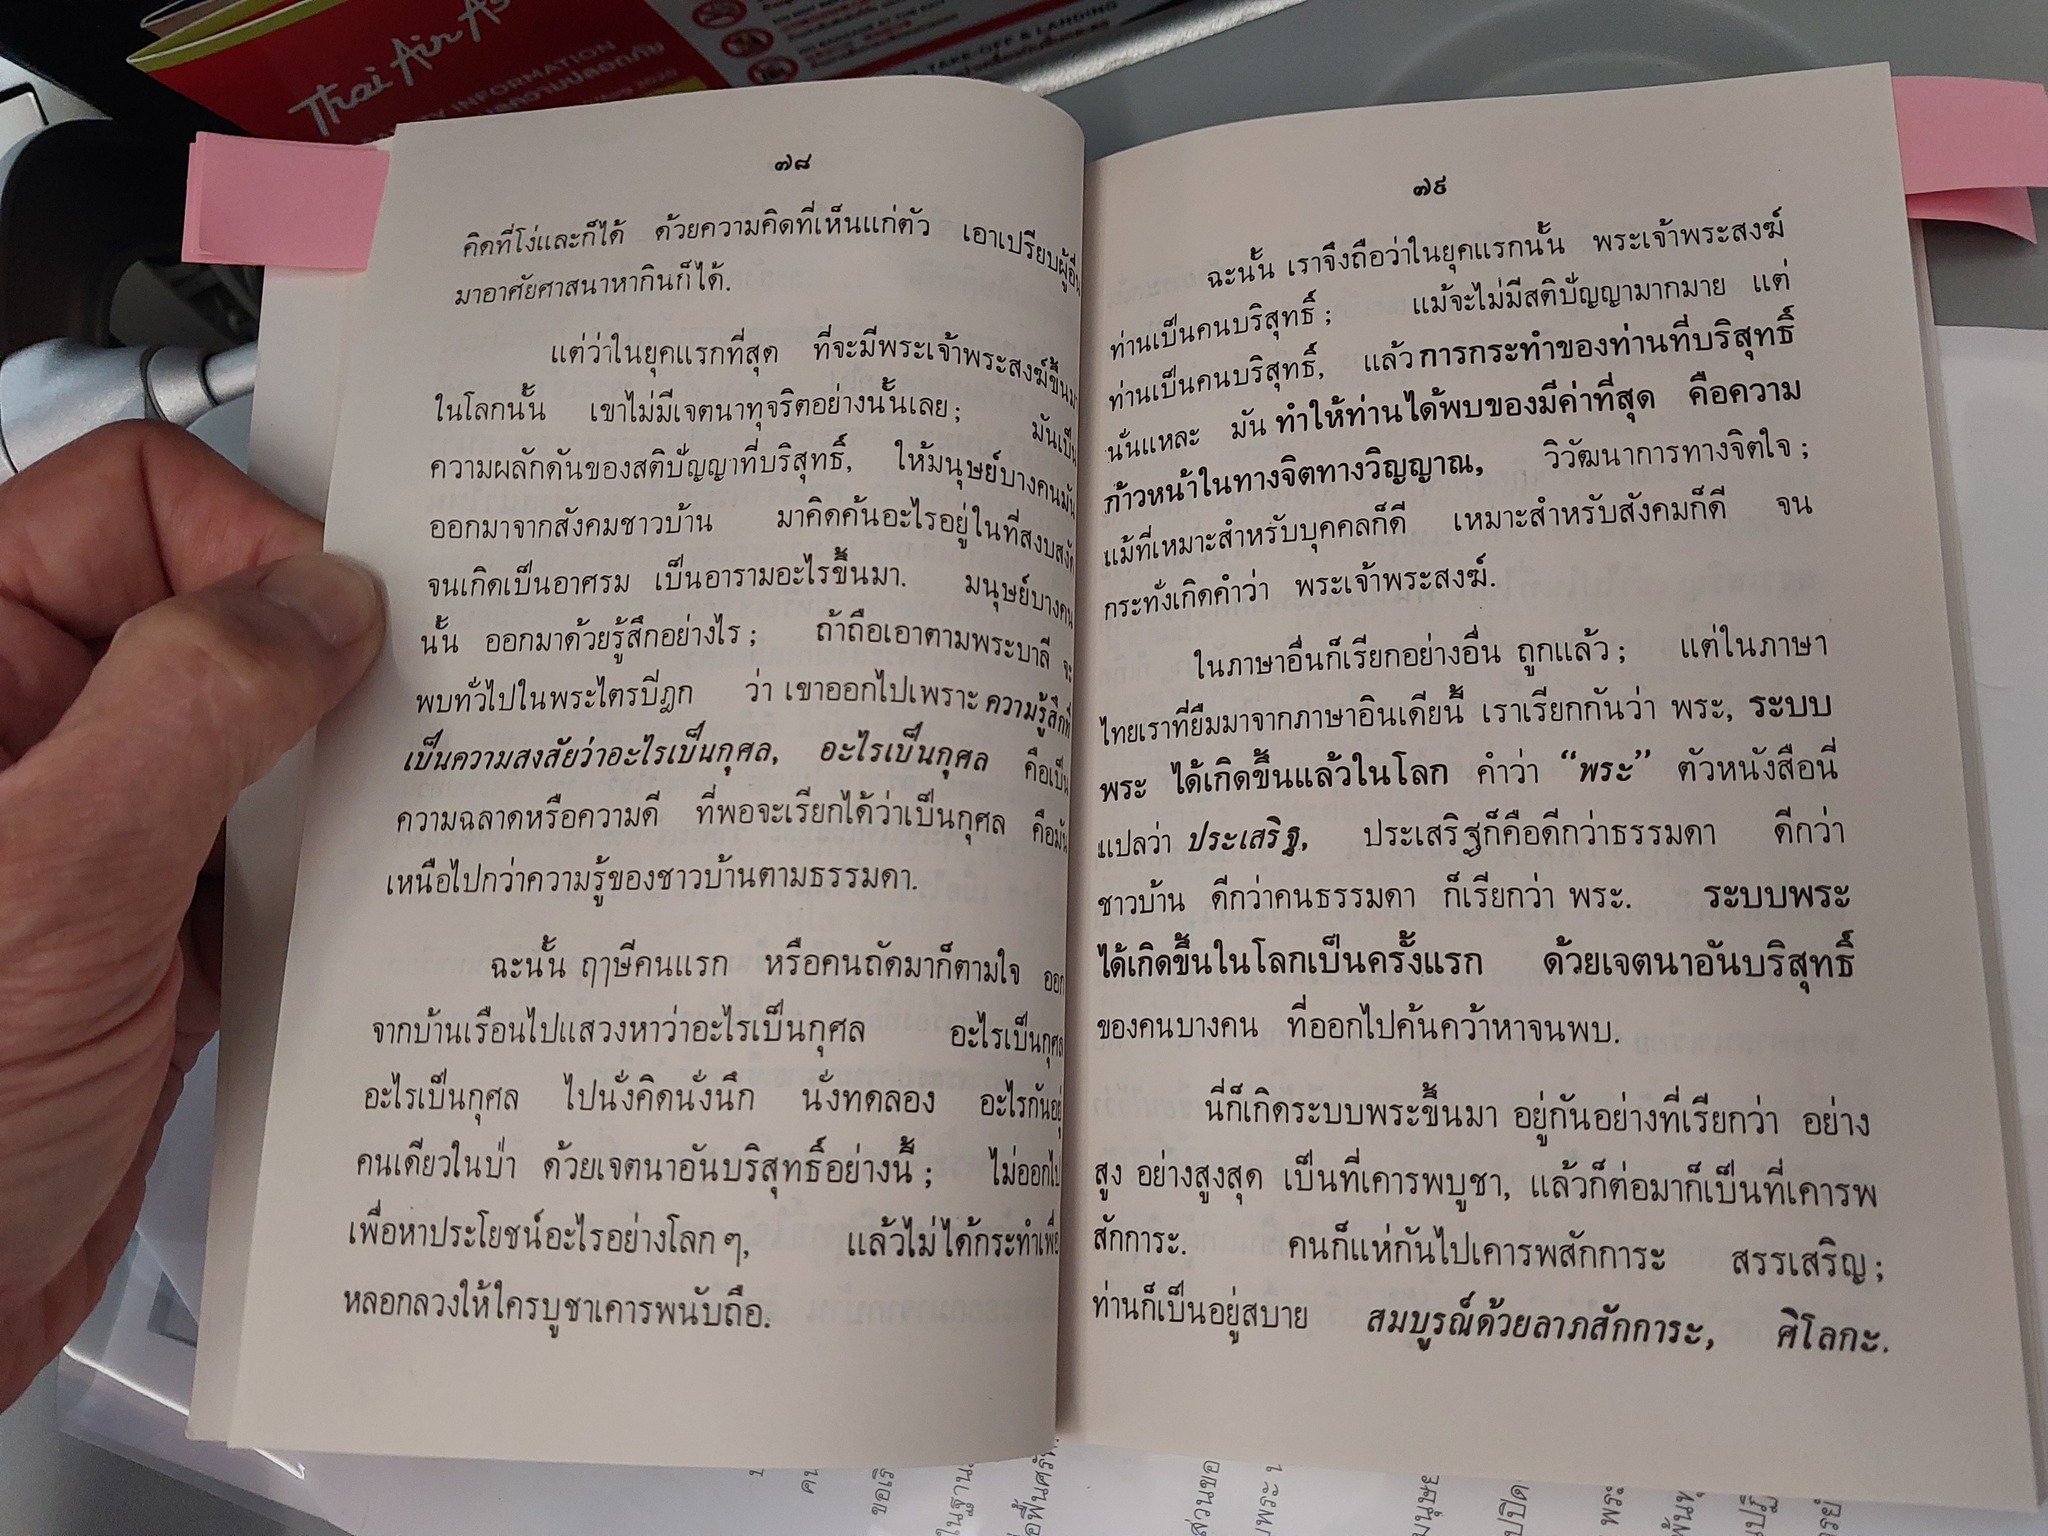 Thai Air As
INFORMATION
TAKE-OFF & LANDING
๗๘
คิดที่โง่และก็ได้ ด้วยความคิดที่เห็นแก่ตัว เอาเปรียบผู้อื่น
มาอาศัยศาสนาหากินก็ได้.
แต่ว่าในยุคแรกที่สุด ที่จะมีพระเจ้าพระสงฆ์ขึ้นมา
ในโลกนั้น เขาไม่มีเจตนาทุจริตอย่างนั้นเลย; มันเป็น
ความผลักดันของสติปัญญาที่บริสุทธิ์, ให้มนุษย์บางคนมัน
ออกมาจากสังคมชาวบ้าน มาคิดค้นอะไรอยู่ในที่สงบสงัด
จนเกิดเป็นอาศรม เป็นอารามอะไรขึ้นมา. มนุษย์บางคน
นั้น ออกมาด้วยรู้สึกอย่างไร; ถ้าถือเอาตามพระบาลี จะ
พบทั่วไปในพระไตรปิฎก ว่า เขาออกไปเพราะ ความรู้สึกที่
เป็นความสงสัยว่าอะไรเป็นกุศล, อะไรเป็นกุศล คือเป็น
ความฉลาดหรือความดี ที่พอจะเรียกได้ว่าเป็นกุศล คือมัน
เหนือไปกว่าความรู้ของชาวบ้านตามธรรมดา.
ฉะนั้น ฤๅษีคนแรก หรือคนถัดมาก็ตามใจ ออก
จากบ้านเรือนไปแสวงหาว่าอะไรเป็นกุศล อะไรเป็นกุศล
อะไรเป็นกุศล ไปนั่งคิดนั่งนึก นั่งทดลอง อะไรกันอยู่
คนเดียวในป่า ด้วยเจตนาอันบริสุทธิ์อย่างนี้; ไม่ออกไป
เพื่อหาประโยชน์อะไรอย่างโลก ๆ, แล้วไม่ได้กระทำเพื่อ
หลอกลวงให้ใครบูชาเคารพนับถือ.
๗๙
ฉะนั้น เราจึงถือว่าในยุคแรกนั้น พระเจ้าพระสงฆ์
ท่านเป็นคนบริสุทธิ์; แม้จะไม่มีสติปัญญามากมาย แต่
ท่านเป็นคนบริสุทธิ์, แล้ว การกระทำของท่านที่บริสุทธิ์
นั่นแหละ มัน ทำให้ท่านได้พบของมีค่าที่สุด คือความ
ก้าวหน้าในทางจิตทางวิญญาณ, วิวัฒนาการทางจิตใจ;
แม้ที่เหมาะสำหรับบุคคลก็ดี เหมาะสำหรับสังคมก็ดี จน
กระทั่งเกิดคำว่า พระเจ้าพระสงฆ์.
ในภาษาอื่นก็เรียกอย่างอื่น ถูกแล้ว; แต่ในภาษา
ไทยเราที่ยืมมาจากภาษาอินเดียนี้ เราเรียกกันว่า พระ, ระบบ
พระ ได้เกิดขึ้นแล้วในโลก คำว่า “พระ” ตัวหนังสือนี่
แปลว่า ประเสริฐ, ประเสริฐก็คือดีกว่าธรรมดา ดีกว่า
ชาวบ้าน ดีกว่าคนธรรมดา ก็เรียกว่า พระ. ระบบพระ
ได้เกิดขึ้นในโลกเป็นครั้งแรก ด้วยเจตนาอันบริสุทธิ์
ของคนบางคน ที่ออกไปค้นคว้าหาจนพบ.
นี่ก็เกิดระบบพระขึ้นมา อยู่กันอย่างที่เรียกว่า อย่าง
สูง อย่างสูงสุด เป็นที่เคารพบูชา, แล้วก็ต่อมาก็เป็นที่เคารพ
สักการะ. คนก็แห่กันไปเคารพสักการะ สรรเสริญ;
ท่านก็เป็นอยู่สบาย สมบูรณ์ด้วยลาภสักการะ, ศิโลกะ.